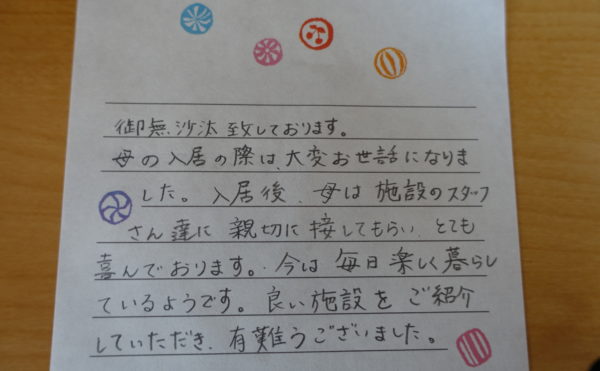 御無沙汰致しております。
母の入居の際は、大変お世話になりま
した。入居後、母は施設のスタッフ
さん達に親切に接してもらい、とても
喜んでおります。今は毎日楽しく暮らし
ているようです。良い施設をご紹介
していただき、有難うございました。